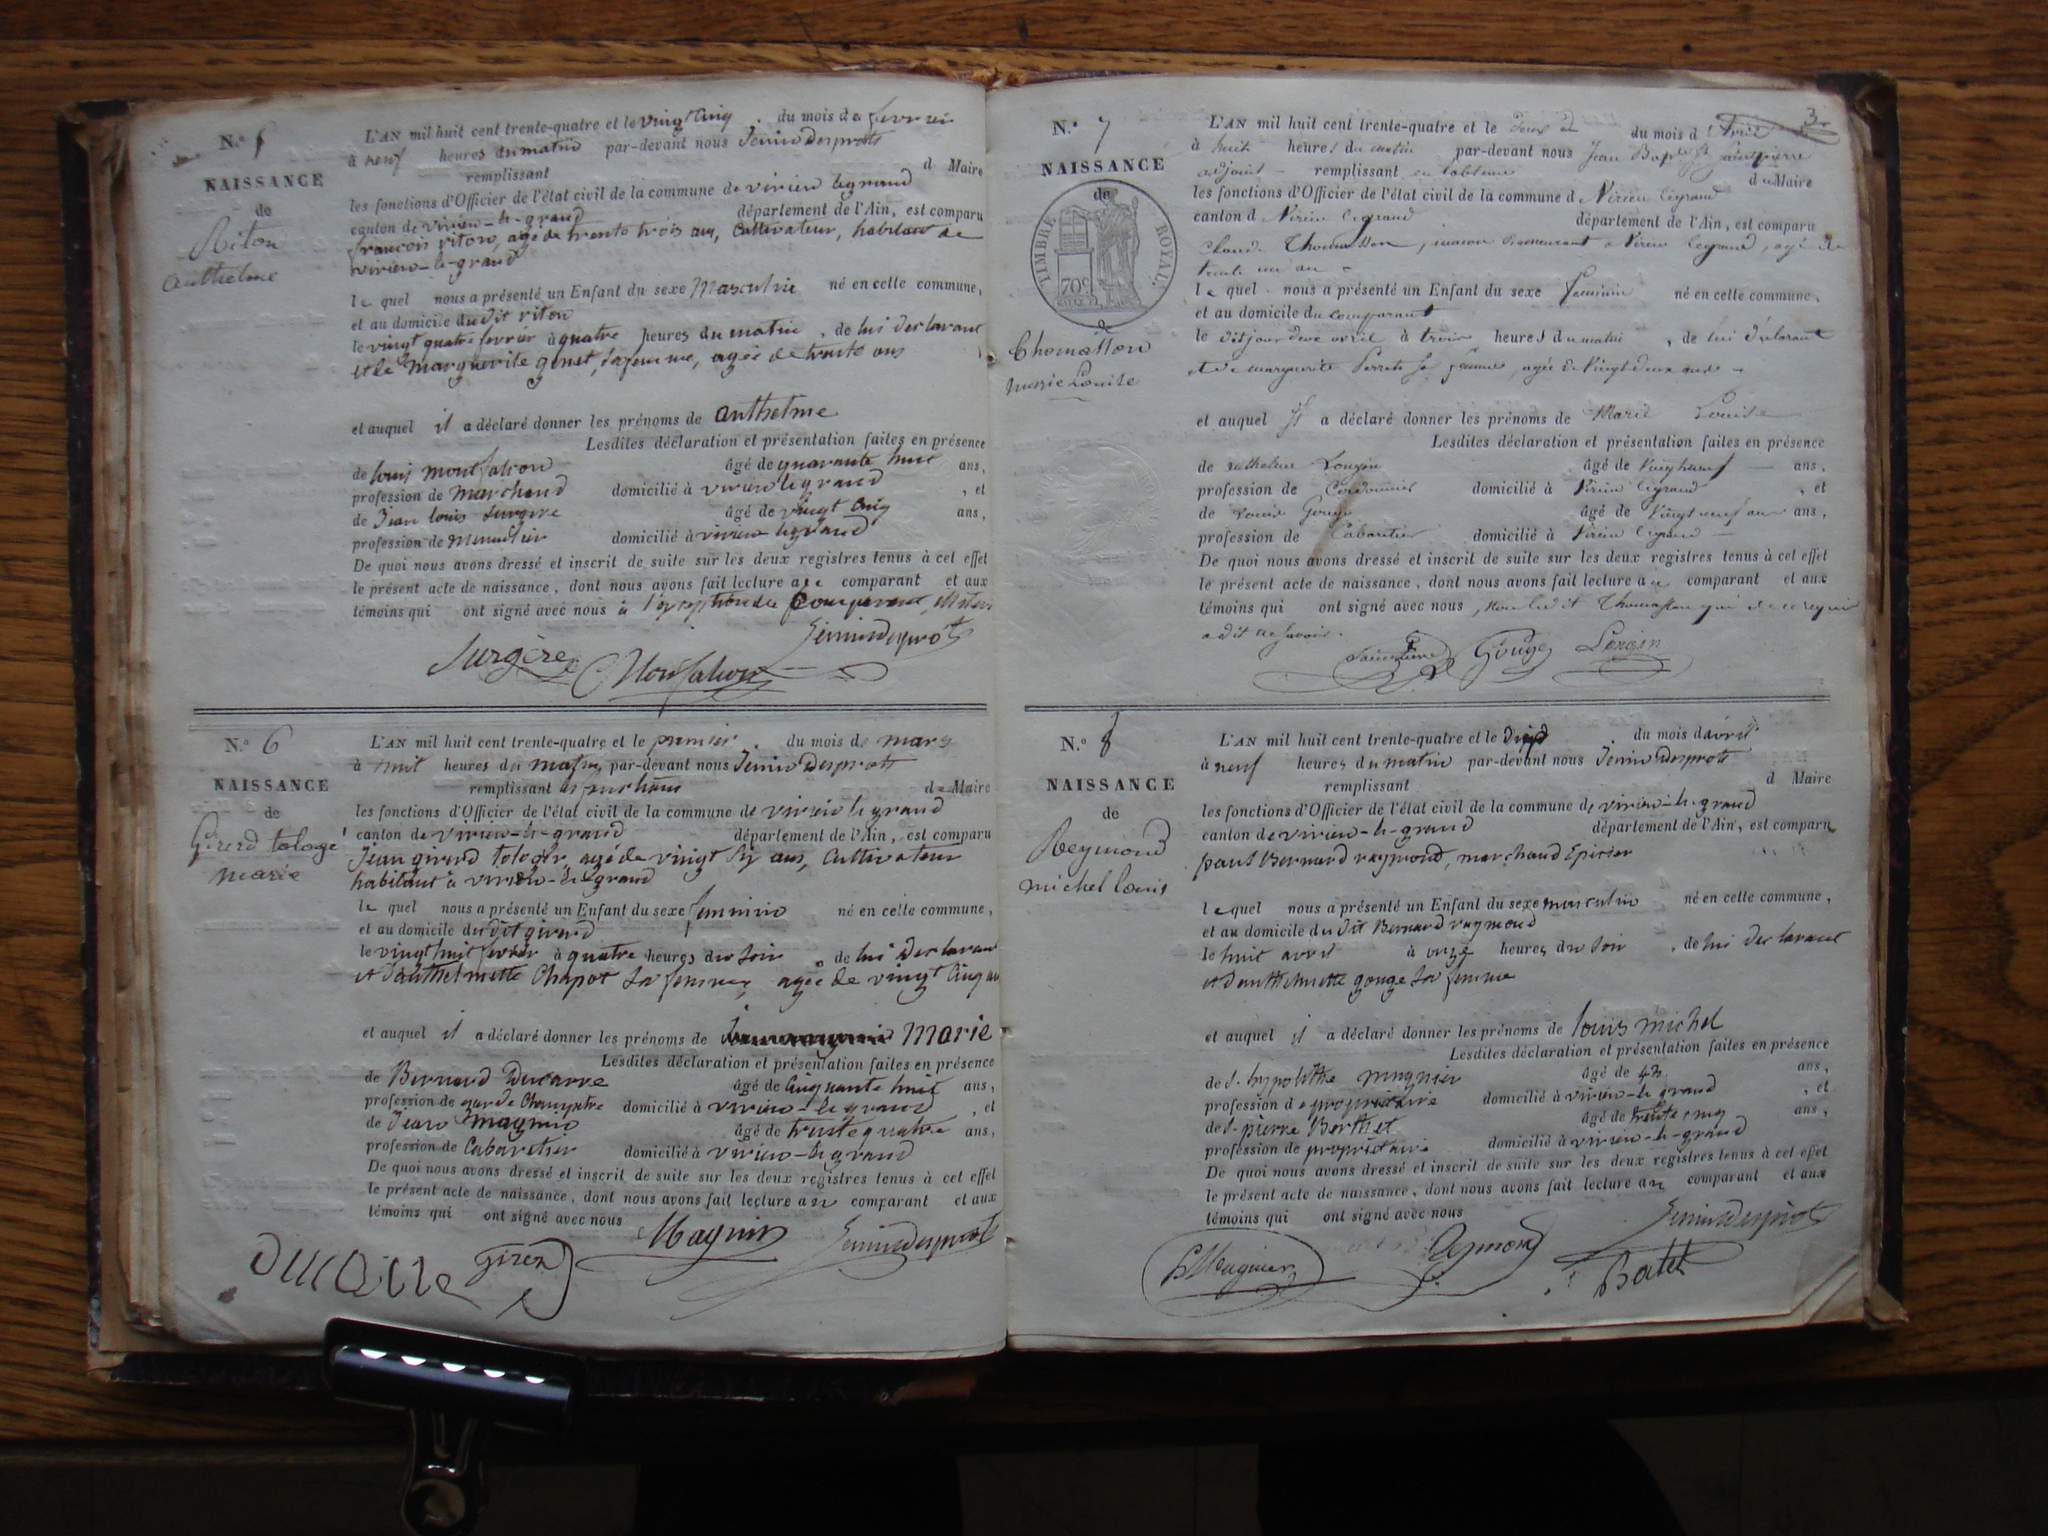 N.º 5
NAISSANCE
de
Riton
anthelme
L'AN mil huit cent trente-quatre et le vingt cinq du mois de fevrier
à neuf heures du matin par-devant nous Jenin Desprots
remplissant d Maire
les fonctions d'Officier de l'état civil de la commune de virieu legrand
canton de virieu-le-grand département de l'Ain, est comparu
francois riton, agé de trente trois ans, Cultivateur, habitant de
virieu-le-grand
le quel nous a présenté un Enfant du sexe Masculin né en cette commune,
et au domicile du dit riton
le vingt quatre fevrier à quatre heures du matin, de lui declarant
et de Marguerite genet, sa femme, agée de trente ans
et auquel il a déclaré donner les prénoms de anthelme
Lesdites déclaration et présentation faites en présence
de louis montfalcon âgé de quarante huit ans,
profession de marchand domicilié à virieu legrand, et
de Jean louis surgere âgé de vingt cinq ans,
profession de menuisier domicilié à virieu legrand
De quoi nous avons dressé et inscrit de suite sur les deux registres tenus à cet effet
le présent acte de naissance, dont nous avons fait lecture au comparant et aux
témoins qui ont signé avec nous à l'exception du Comparant
Jenin Desprots
Surgère Monfalcon
N.º 6
NAISSANCE
de
Girerd tologé
marie
L'AN mil huit cent trente-quatre et le premier du mois de mars
à huit heures du matin par-devant nous Jenin Desprots
remplissant les fonctions de Maire
les fonctions d'Officier de l'état civil de la commune de virieu le grand
canton de virieu-le-grand département de l'Ain, est comparu
Jean girerd tologé, agé de vingt six ans, Cultivateur
habitant à virieu-le-grand
le quel nous a présenté un Enfant du sexe feminin né en cette commune,
et au domicile du dit girerd
le vingt huit fevrier à quatre heures du soir, de lui Declarant
et d'anthelmette Chapot sa femme, agée de vingt cinq ans
et auquel il a déclaré donner les prénoms de Marie
Lesdites déclaration et présentation faites en présence
de Bernard Ducarre âgé de Cinquante huit ans,
profession de garde Champetre domicilié à virieu-le grand, et
de Jean Magnin âgé de trente quatre ans,
profession de Cabaretier domicilié à virieu-le grand
De quoi nous avons dressé et inscrit de suite sur les deux registres tenus à cet effet
le présent acte de naissance, dont nous avons fait lecture au comparant et aux
témoins qui ont signé avec nous
Magnin Jenin Desprots
Ducarre Girerd
3
N.º 7
NAISSANCE
de
TIMBRE ROYAL
70 c
Thomasson
marie Louise
L'AN mil huit cent trente-quatre et le deux du mois d'Avril
à huit heures du matin par-devant nous Jean Bapte Saintpierre
adjoint remplissant du Maire
les fonctions d'Officier de l'état civil de la commune d Virieu legrand
canton d Virieu legrand département de l'Ain, est comparu
Claude Thomasson, maçon demeurant a Virieu legrand, agé de
trente un an
le quel nous a présenté un Enfant du sexe feminin né en cette commune,
et au domicile du comparant
le dit jour deux avril à trois heures du matin, de lui déclarant
et de marguerite Perret sa femme, agée de Vingt deux ans
et auquel il a déclaré donner les prénoms de Marie Louise
Lesdites déclaration et présentation faites en présence
de anthelme Longin âgé de Vingt neuf ans,
profession de Cordonnier domicilié à Virieu legrand, et
de Louis Gouge âgé de Vingt neuf ans ans,
profession de Cabaretier domicilié à Virieu legrand
De quoi nous avons dressé et inscrit de suite sur les deux registres tenus à cet effet
le présent acte de naissance, dont nous avons fait lecture au comparant et aux
témoins qui ont signé avec nous, non ledit Thomasson qui de ce requis
a dit ne savoir.
Saintpierre Gouge Longin
N.º 8
NAISSANCE
de
Reymond
michel louis
L'AN mil huit cent trente-quatre et le du mois d'avril
à neuf heures du matin par-devant nous Jenin Desprots
remplissant d Maire
les fonctions d'Officier de l'état civil de la commune de virieu-le-grand
canton de virieu-le-grand département de l'Ain, est comparu
paul Bernard raymond, marchand Epicier
lequel nous a présenté un Enfant du sexe masculin né en cette commune,
et au domicile du dit Bernard raymond
le huit avril à onze heures du soir, de lui declarant
et d'anthelmette gouge sa femme
et auquel il a déclaré donner les prénoms de louis michel
Lesdites déclaration et présentation faites en présence
de S. hypolithe magnier âgé de ans,
profession de proprietaire domicilié à virieu-le grand, et
de S. pierre Berthet âgé de trente cinq ans,
profession de proprietaire domicilié à virieu-le-grand
De quoi nous avons dressé et inscrit de suite sur les deux registres tenus à cet effet
le présent acte de naissance, dont nous avons fait lecture au comparant et aux
témoins qui ont signé avec nous
Jenin Desprots
H Magnier Reymond Batet